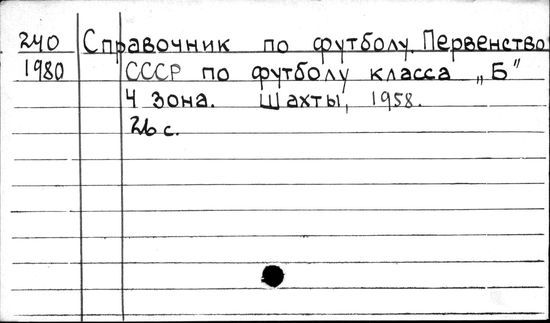 240 Справочник по футболу. Первенство
1980 СССР по футболу класса „Б"
4 зона. Шахты, 1958.
26 с.